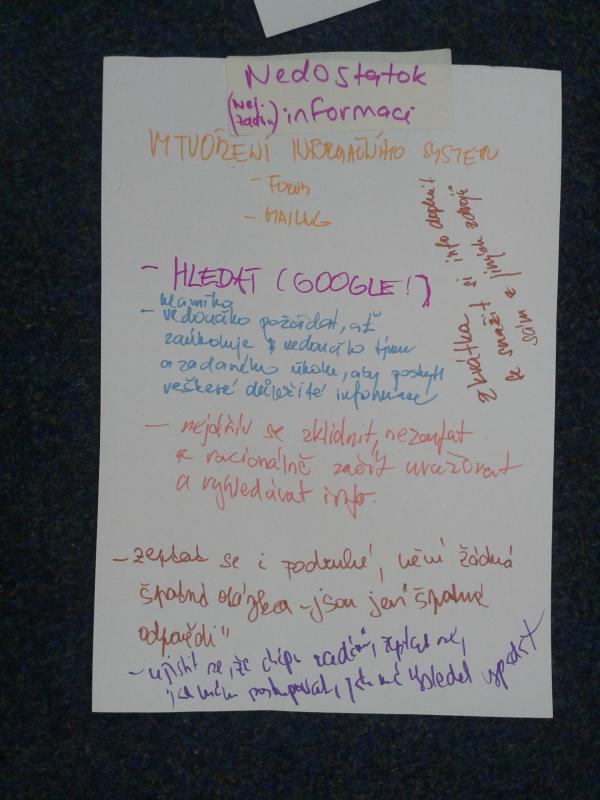 Nedostatok
(Nej. zadán) informací
VYTVOŘENÍ INFORMAČNÍHO SYSTÉMU
- FORUM
- MAILING
- HLEDAT (GOOGLE!)
hlavního
- vedoucího požádat, ať
zaúkoluje vedoucího týmu
a zadaného úkolu, aby poskytl
veškeré důležité informace
zkrátka si info doplnit
se snažit z jiných zdrojů
sám
- nejdřív se zklidnit, nezoufat
a racionálně začít uvažovat
a vyhledávat info.
- zeptat se i podruhé, není žádná
špatná otázka - jsou jen "špatné
odpovědi"
- ujistit se, že chápu zadání, zeptat se,
jak mám postupovat, jak má výsledek vypadat